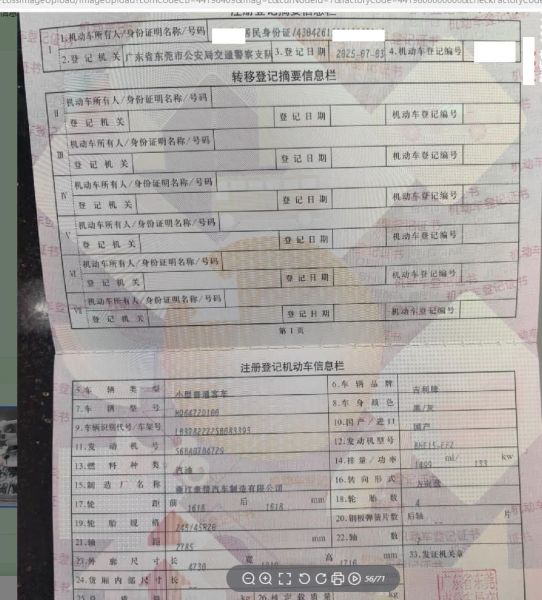 注册登记摘要信息栏
I
1.机动车所有人/身份证明名称/号码 居民身份证/4304261
2.登记机关 广东省东莞市公安局交通警察支队 3.登记日期 2025-07-03 4.机动车登记编号
转移登记摘要信息栏
II 机动车所有人/身份证明名称/号码
登记机关 登记日期 机动车登记编号
III 机动车所有人/身份证明名称/号码
登记机关 登记日期 机动车登记编号
IV 机动车所有人/身份证明名称/号码
登记机关 登记日期 机动车登记编号
V 机动车所有人/身份证明名称/号码
登记机关 登记日期 机动车登记编号
VI 机动车所有人/身份证明名称/号码
登记机关 登记日期 机动车登记编号
VII 机动车所有人/身份证明名称/号码
登记机关 登记日期 机动车登记编号
第1页
注册登记机动车信息栏
5.车辆类型 小型普通客车 6.车辆品牌 吉利牌
7.车辆型号 8.车身颜色 黑/灰
9.车辆识别代号/车架号 10.国产/进口 国产
11.发动机号 12.发动机型号
13.燃料种类 汽油 14.排量/功率 1499 ml/ 133 kw
15.制造厂名称 浙江豪情汽车制造有限公司 16.转向形式 方向盘
17.轮距 前 1618 后 1618 mm 18.轮胎数 4
19.轮胎规格 245/45R20 20.钢板弹簧片数 后轴 片
21.轴距 2785 mm 22.轴数
23.外廓尺寸 长 4730 宽 高 1716 mm 33.发证机关章
24.货厢内部尺寸 长
kg 26.核定载质量 kg
56/71